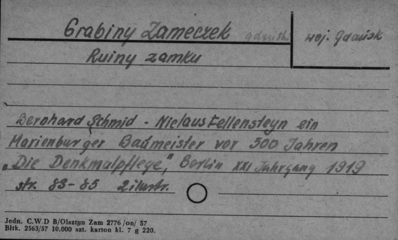 Grabiny Zameczek gdańsk woj. Gdańsk
Ruiny zamku
Bernhard Schmid - Niclaus Fellensteyn ein
Marienburger Badmeister vor 500 Jahren
„Die Denkmalpflege," Berlin XXI Jahrgang 1919
str. 83-85 2 ilustr.
Jedn. C.W.D B/Olsztyn Zam 2776/oa/ 57
Bltk. 2563/57 10.000 szt. karton kl. 7 g 220.